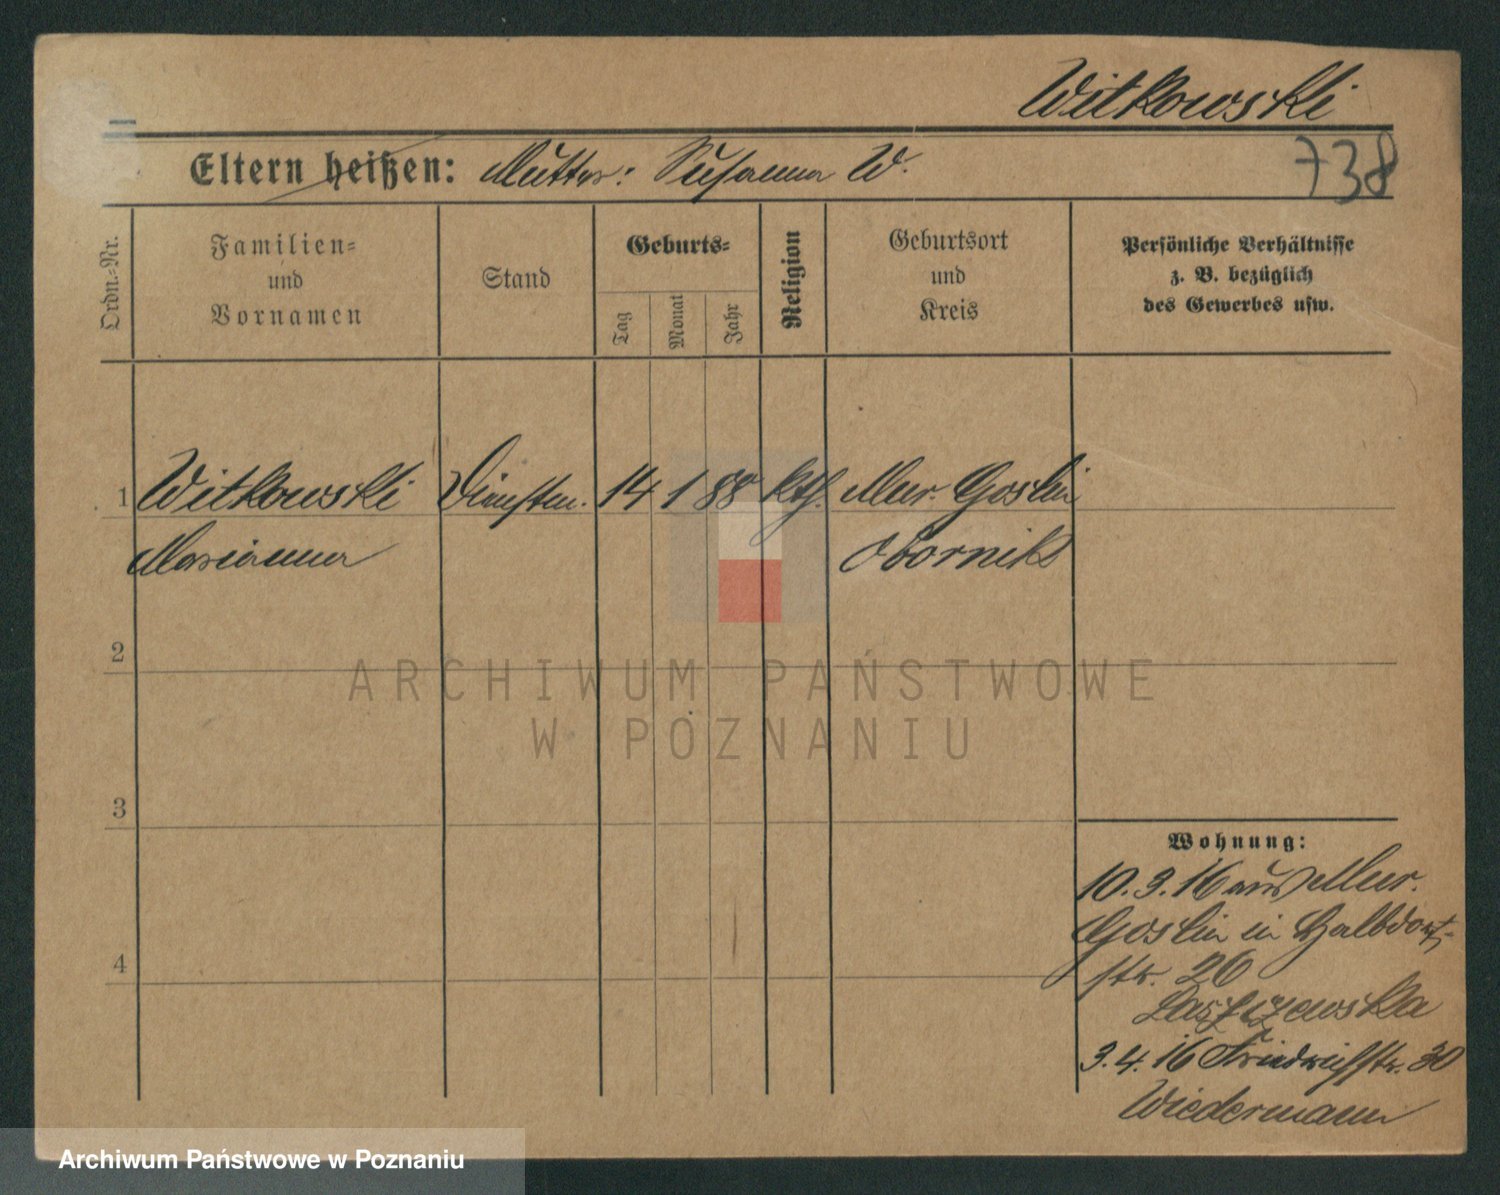 Witkowski
Eltern heißen: Mutter: Susanna W.
738
Ordn.-Nr.
Familien-
und
Vornamen
Stand
Geburts-
Tag
Monat
Jahr
Religion
Geburtsort
und
Kreis
Persönliche Verhältnisse
z. B. bezüglich
des Gewerbes usw.
1 Witkowski Dienstm. 14 1 88 kth. Mur. Goslin
Marianna Obornik
2
3
4
Wohnung:
10.3.16 aus Mur.
Goslin in Halbdorf-
str. 26
Laszczewska
3.4.16 Friedrichstr. 30
Wiedermann
ARCHIWUM PAŃSTWOWE
W POZNANIU
Archiwum Państwowe w Poznaniu